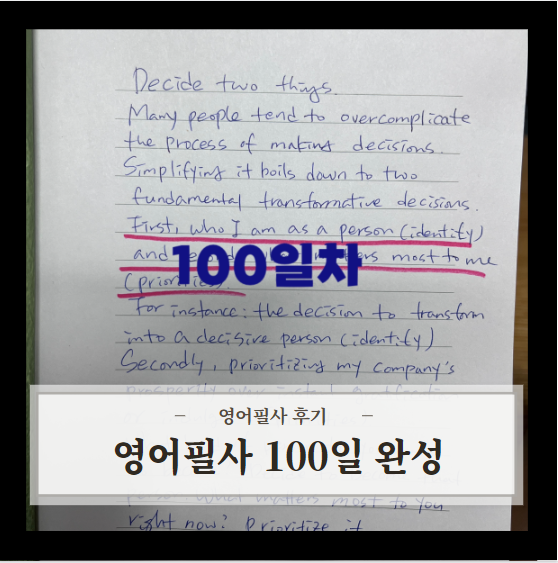 Decide two things.
Many people tend to overcomplicate
the process of making decisions.
Simplifying it boils down to two
fundamental transformative decisions.
First, who I am as a person (identity)
and most to me
100일차
For instance: the decision to transform
into a decisive person (identity)
Secondly, prioritizing my company's
– 영어필사 후기 –
영어필사 100일 완성
what matters most to you
right now? Prioritize it